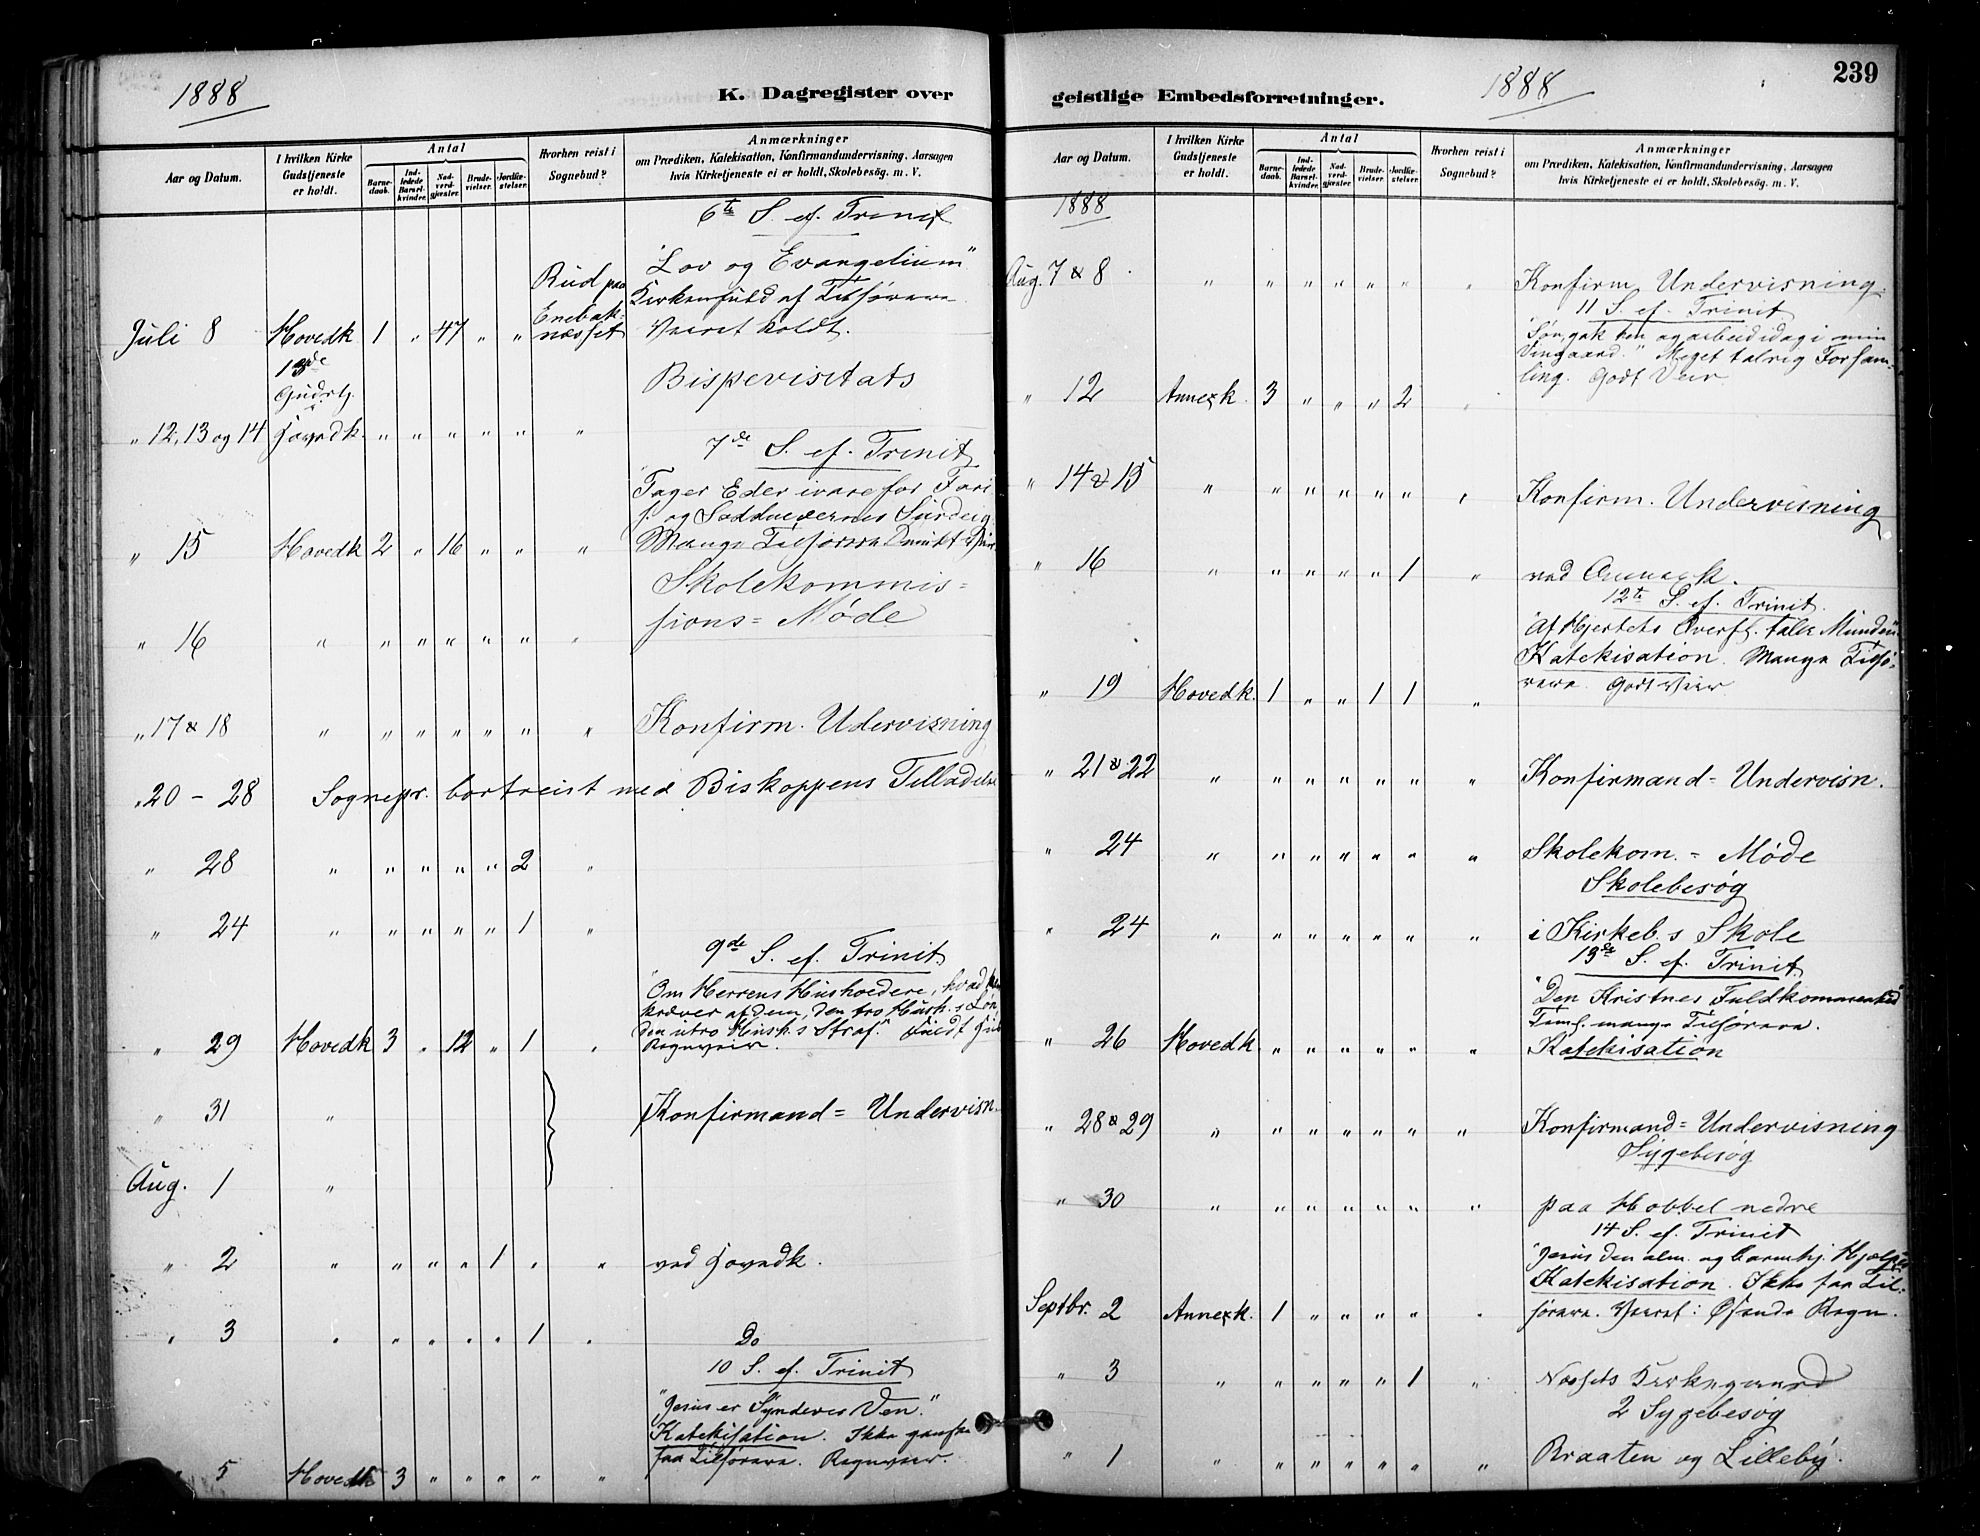 1888
K. Dagregister over
Aar og Datum.
I hvilken Kirke Gudstjeneste er holdt.
Antal
Barnedaab.
Indledede Barselkvinder.
Nadverdgjæster.
Brudevielser.
Jordfæstelser.
Hvorhen reist i Sognebud?
Anmærkninger
om Prædiken, Katekisation, Konfirmandundervisning, Aarsagen
hvis Kirketjeneste ei er holdt, Skolebesög. m. V.
6te S. ef. Trinit
Juli 8 Hovedk 1 " 47 " " Rud paa Enebaknæsset "Lov og Evangelium"
Kirken fuld af Tilhørere
Veiret koldt.
" 12, 13 og 14 Hovedk. " " " " " " Bispevisitats
7de S. ef. Trinit
" 15 Hovedk 2 " 16 " " " "Tager Eder ivare for Fari
s. og Sadducæernes Surdeig
Mange Tilhørere
" 16 " " " " " " " Skolekommis=
sions= Møde
" 17 & 18 " " " " " " " Konfirm. Udervisning
" 20 - 28 Sognepr. bortreist med Biskoppens Tilladelse
" 28 " " " " " 2 "
" 24 " " " " " 1 "
9de S. ef. Trinit
" 29 Hovedk 3 " 12 " 1 " "Om Herrens Husholdere, hvad han
kræver af dem, den tro Hush.s Løn,
den utro Hush.s Straf."
Regnveir.
" 31 " Konfirmand= Undervisn.
Aug. 1 "
" 2 " " " " 1 " " ved Hovedk.
" 3 " " " " " 1 " Do
10 S. ef. Trinit
" 5 Hovedk 3 " " " " " "Jesus er Synderes Ven."
Katekisation. Ikke ganske
faa Tilhørere. Regnveir.
geistlige Embedsforretninger.
1888
239
Aar og Datum.
I hvilken Kirke Gudstjeneste er holdt.
Antal
Barnedaab.
Indledede Barselkvinder.
Nadverdgjæster.
Brudevielser.
Jordfæstelser.
Hvorhen reist i Sognebud?
Anmærkninger
om Prædiken, Katekisation, Konfirmandundervisning, Aarsagen
hvis Kirketjeneste ei er holdt, Skolebesög. m. V.
1888
Aug. 7 & 8 " " " " " " " Konfirm. Undervisning.
11 S. ef. Trinit
" 12 Annexk. 3 " " " 2 " "Søn, gak hen og arbeid idag i min
Vingaard." Meget talrig Forsam=
ling. Godt Veir
" 14 & 15 " " " " " " " Konfirm. Undervisning
" 16 " " " " " 1 " ved Annexk.
12te S. ef. Trinit.
" 19 Hovedk. 1 " " 1 1 " "Af Hjertets Overfl. taler Munden"
Katekisation. Mange Tilhø=
rere. Godt Veir
" 21 & 22 " " " " " " " Konfirmand= Undervisn.
" 24 " " " " " " " Skolekom. = Møde
Skolebesøg
" 24 " " " " " " " i Kirkeb.s Skole
13de S. ef. Trinit.
" 26 Hovedk. " " " " " " "Den Kristnes Fuldkommenhed"
Teml. mange Tilhørere.
Katekisation
" 28 & 29 " " " " " " " Konfirmand= Undervisning
Sygebesøg
" 30 " " " " " " " paa Hobbel nedre
14 S. ef. Trinit
Septbr. 2 Annexk. 1 " " " " " "Jesus den alm. og barmhj. Hjælper
Katekisation. Ikke faa Til=
hørere. Veiret: Øsende Regn.
" 3 " " " " " 1 " Næssets Kirkegaard
2 Sygebesøg
" 1 " " " " " " " Braaten og Lilleby.